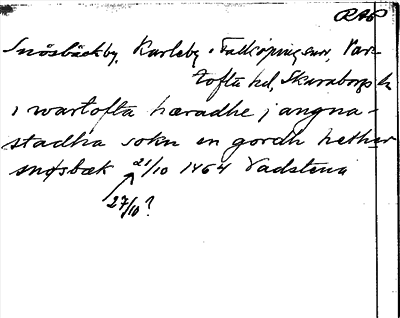 RAP
Snösbäckby, Karleby, Falköping, Var-
tofta hd, Skaraborgs ln
i wartofta hæradhe j angna-
stadha sokn en gordh hether
snøsbæk 21/10 1464 Vadstena
27/10?